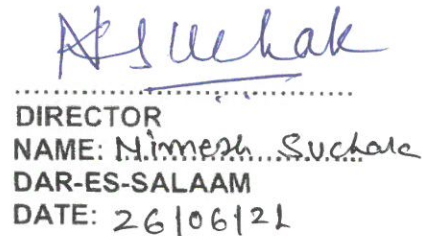 NSuchak
DIRECTOR
NAME: Nimesh Suchak
DAR-ES-SALAAM
DATE: 26/06/21